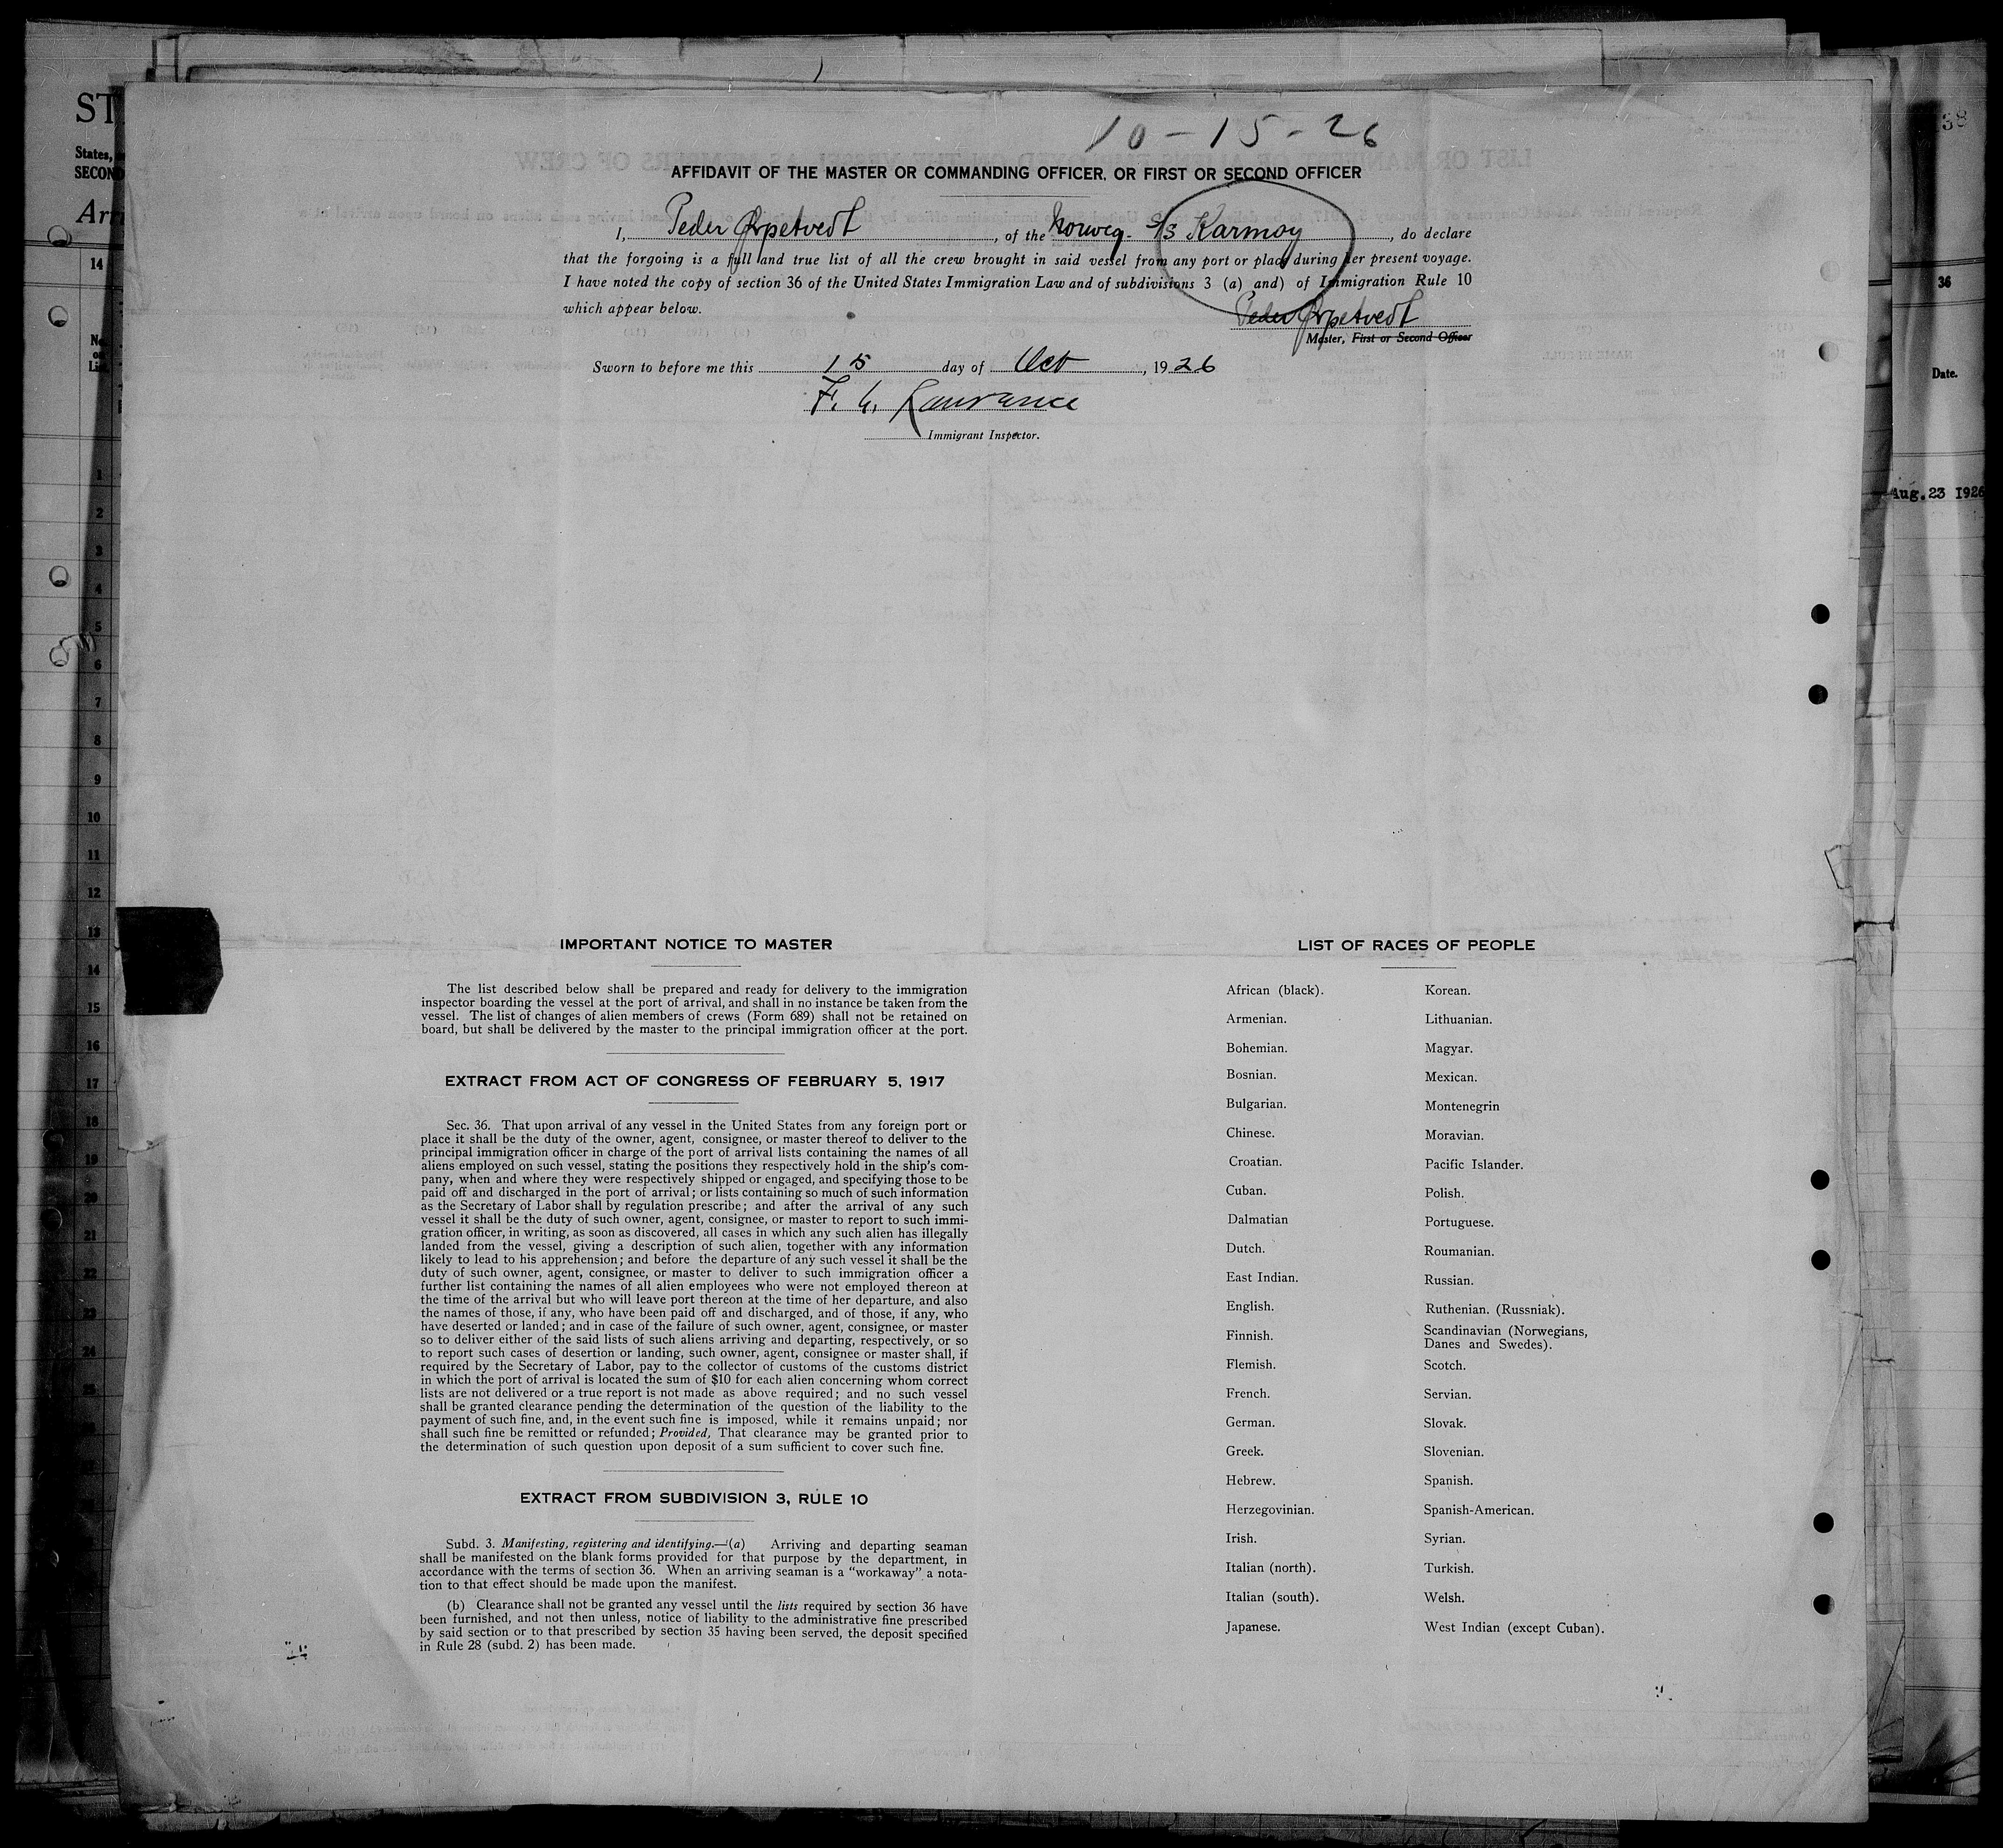 10-15-26
AFFIDAVIT OF THE MASTER OR COMMANDING OFFICER, OR FIRST OR SECOND OFFICER
I, Peder Ørpetvedt, of the Norweg. S/S Karmoy, do declare
that the forgoing is a full and true list of all the crew brought in said vessel from any port or place during her present voyage.
I have noted the copy of section 36 of the United States Immigration Law and of subdivisions 3 (a) and) of Immigration Rule 10
which appear below.
Peder Ørpetvedt
Master, First or Second Officer
Sworn to before me this 15 day of Oct, 1926
Immigrant Inspector.
IMPORTANT NOTICE TO MASTER
The list described below shall be prepared and ready for delivery to the immigration
inspector boarding the vessel at the port of arrival, and shall in no instance be taken from the
vessel. The list of changes of alien members of crews (Form 689) shall not be retained on
board, but shall be delivered by the master to the principal immigration officer at the port.
EXTRACT FROM ACT OF CONGRESS OF FEBRUARY 5, 1917
Sec. 36. That upon arrival of any vessel in the United States from any foreign port or
place it shall be the duty of the owner, agent, consignee, or master thereof to deliver to the
principal immigration officer in charge of the port of arrival lists containing the names of all
aliens employed on such vessel, stating the positions they respectively hold in the ship's com-
pany, when and where they were respectively shipped or engaged, and specifying those to be
paid off and discharged in the port of arrival; or lists containing so much of such information
as the Secretary of Labor shall by regulation prescribe; and after the arrival of any such
vessel it shall be the duty of such owner, agent, consignee, or master to report to such immi-
gration officer, in writing, as soon as discovered, all cases in which any such alien has illegally
landed from the vessel, giving a description of such alien, together with any information
likely to lead to his apprehension; and before the departure of any such vessel it shall be the
duty of such owner, agent, consignee, or master to deliver to such immigration officer a
further list containing the names of all alien employees who were not employed thereon at
the time of the arrival but who will leave port thereon at the time of her departure, and also
the names of those, if any, who have been paid off and discharged, and of those, if any, who
have deserted or landed; and in case of the failure of such owner, agent, consignee, or master
so to deliver either of the said lists of such aliens arriving and departing, respectively, or so
to report such cases of desertion or landing, such owner, agent, consignee or master shall, if
required by the Secretary of Labor, pay to the collector of customs of the customs district
in which the port of arrival is located the sum of $10 for each alien concerning whom correct
lists are not delivered or a true report is not made as above required; and no such vessel
shall be granted clearance pending the determination of the question of the liability to the
payment of such fine, and, in the event such fine is imposed, while it remains unpaid; nor
shall such fine be remitted or refunded; Provided, That clearance may be granted prior to
the determination of such question upon deposit of a sum sufficient to cover such fine.
EXTRACT FROM SUBDIVISION 3, RULE 10
Subd. 3. Manifesting, registering and identifying.—(a) Arriving and departing seaman
shall be manifested on the blank forms provided for that purpose by the department, in
accordance with the terms of section 36. When an arriving seaman is a "workaway" a nota-
tion to that effect should be made upon the manifest.
(b) Clearance shall not be granted any vessel until the lists required by section 36 have
been furnished, and not then unless, notice of liability to the administrative fine prescribed
by said section or to that prescribed by section 35 having been served, the deposit specified
in Rule 28 (subd. 2) has been made.
LIST OF RACES OF PEOPLE
African (black).
Armenian.
Bohemian.
Bosnian.
Bulgarian.
Chinese.
Croatian.
Cuban.
Dalmatian
Dutch.
East Indian.
English.
Finnish.
Flemish.
French.
German.
Greek.
Hebrew.
Herzegovinian.
Irish.
Italian (north).
Italian (south).
Japanese.
Korean.
Lithuanian.
Magyar.
Mexican.
Montenegrin
Moravian.
Pacific Islander.
Polish.
Portuguese.
Roumanian.
Russian.
Ruthenian. (Russniak).
Scandinavian (Norwegians,
Danes and Swedes).
Scotch.
Servian.
Slovak.
Slovenian.
Spanish.
Spanish-American.
Syrian.
Turkish.
Welsh.
West Indian (except Cuban).
36
Date.
Aug. 23 1926